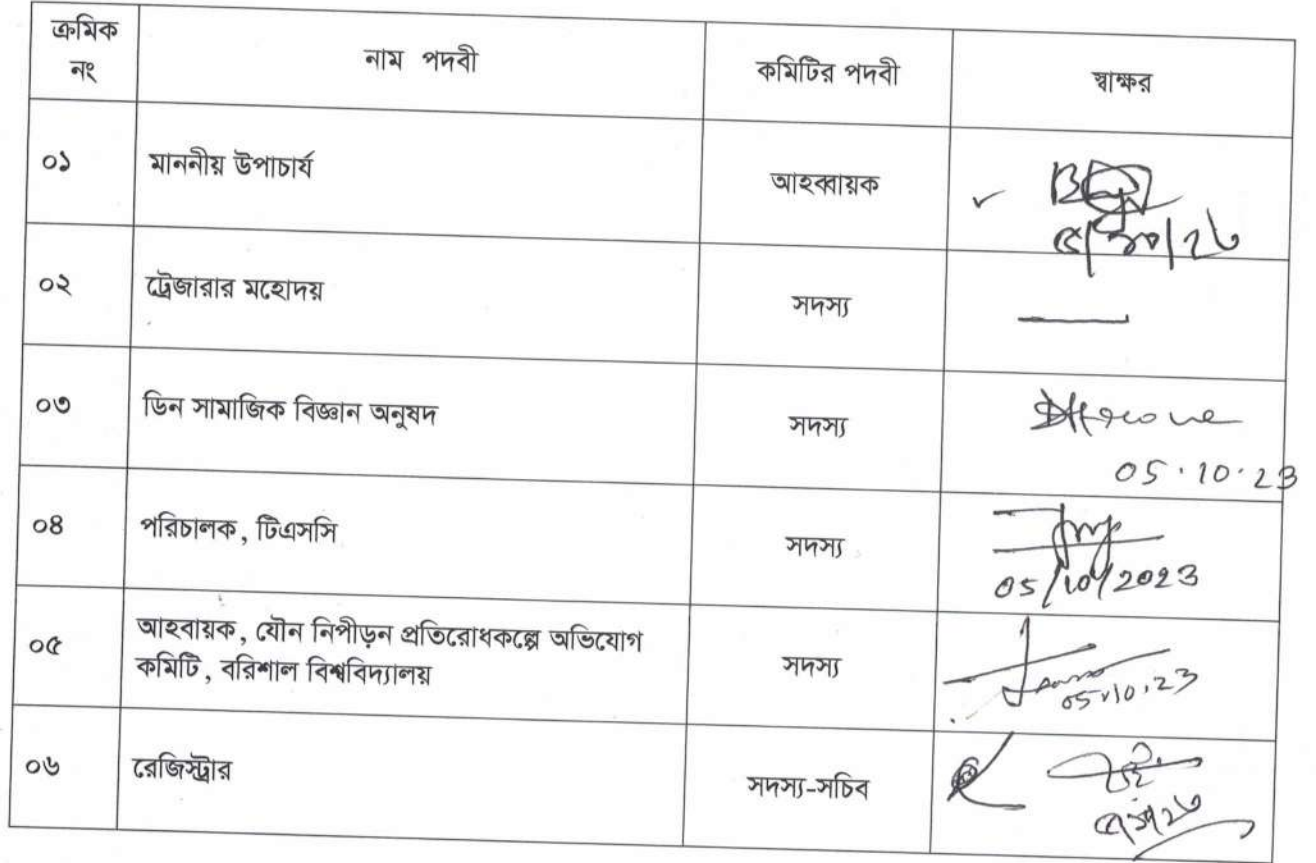 ক্রমিক
নং
নাম পদবী
কমিটির পদবী
স্বাক্ষর
০১
মাননীয় উপাচার্য
আহব্বায়ক
৫/১০/২৩
০২
ট্রেজারার মহোদয়
সদস্য
০৩
ডিন সামাজিক বিজ্ঞান অনুষদ
সদস্য
05.10.23
০৪
পরিচালক, টিএসসি
সদস্য
05/10/2023
০৫
আহবায়ক, যৌন নিপীড়ন প্রতিরোধকল্পে অভিযোগ
কমিটি, বরিশাল বিশ্ববিদ্যালয়
সদস্য
05.10.23
০৬
রেজিস্ট্রার
সদস্য-সচিব